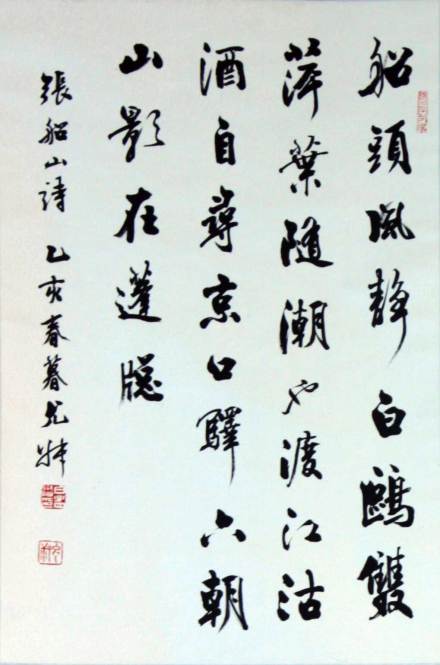 船頭風靜白鷗雙
萍葉隨潮也渡江沽
酒自尋京口驛六朝
山影在蓬牕
張船山詩 乙亥春暮